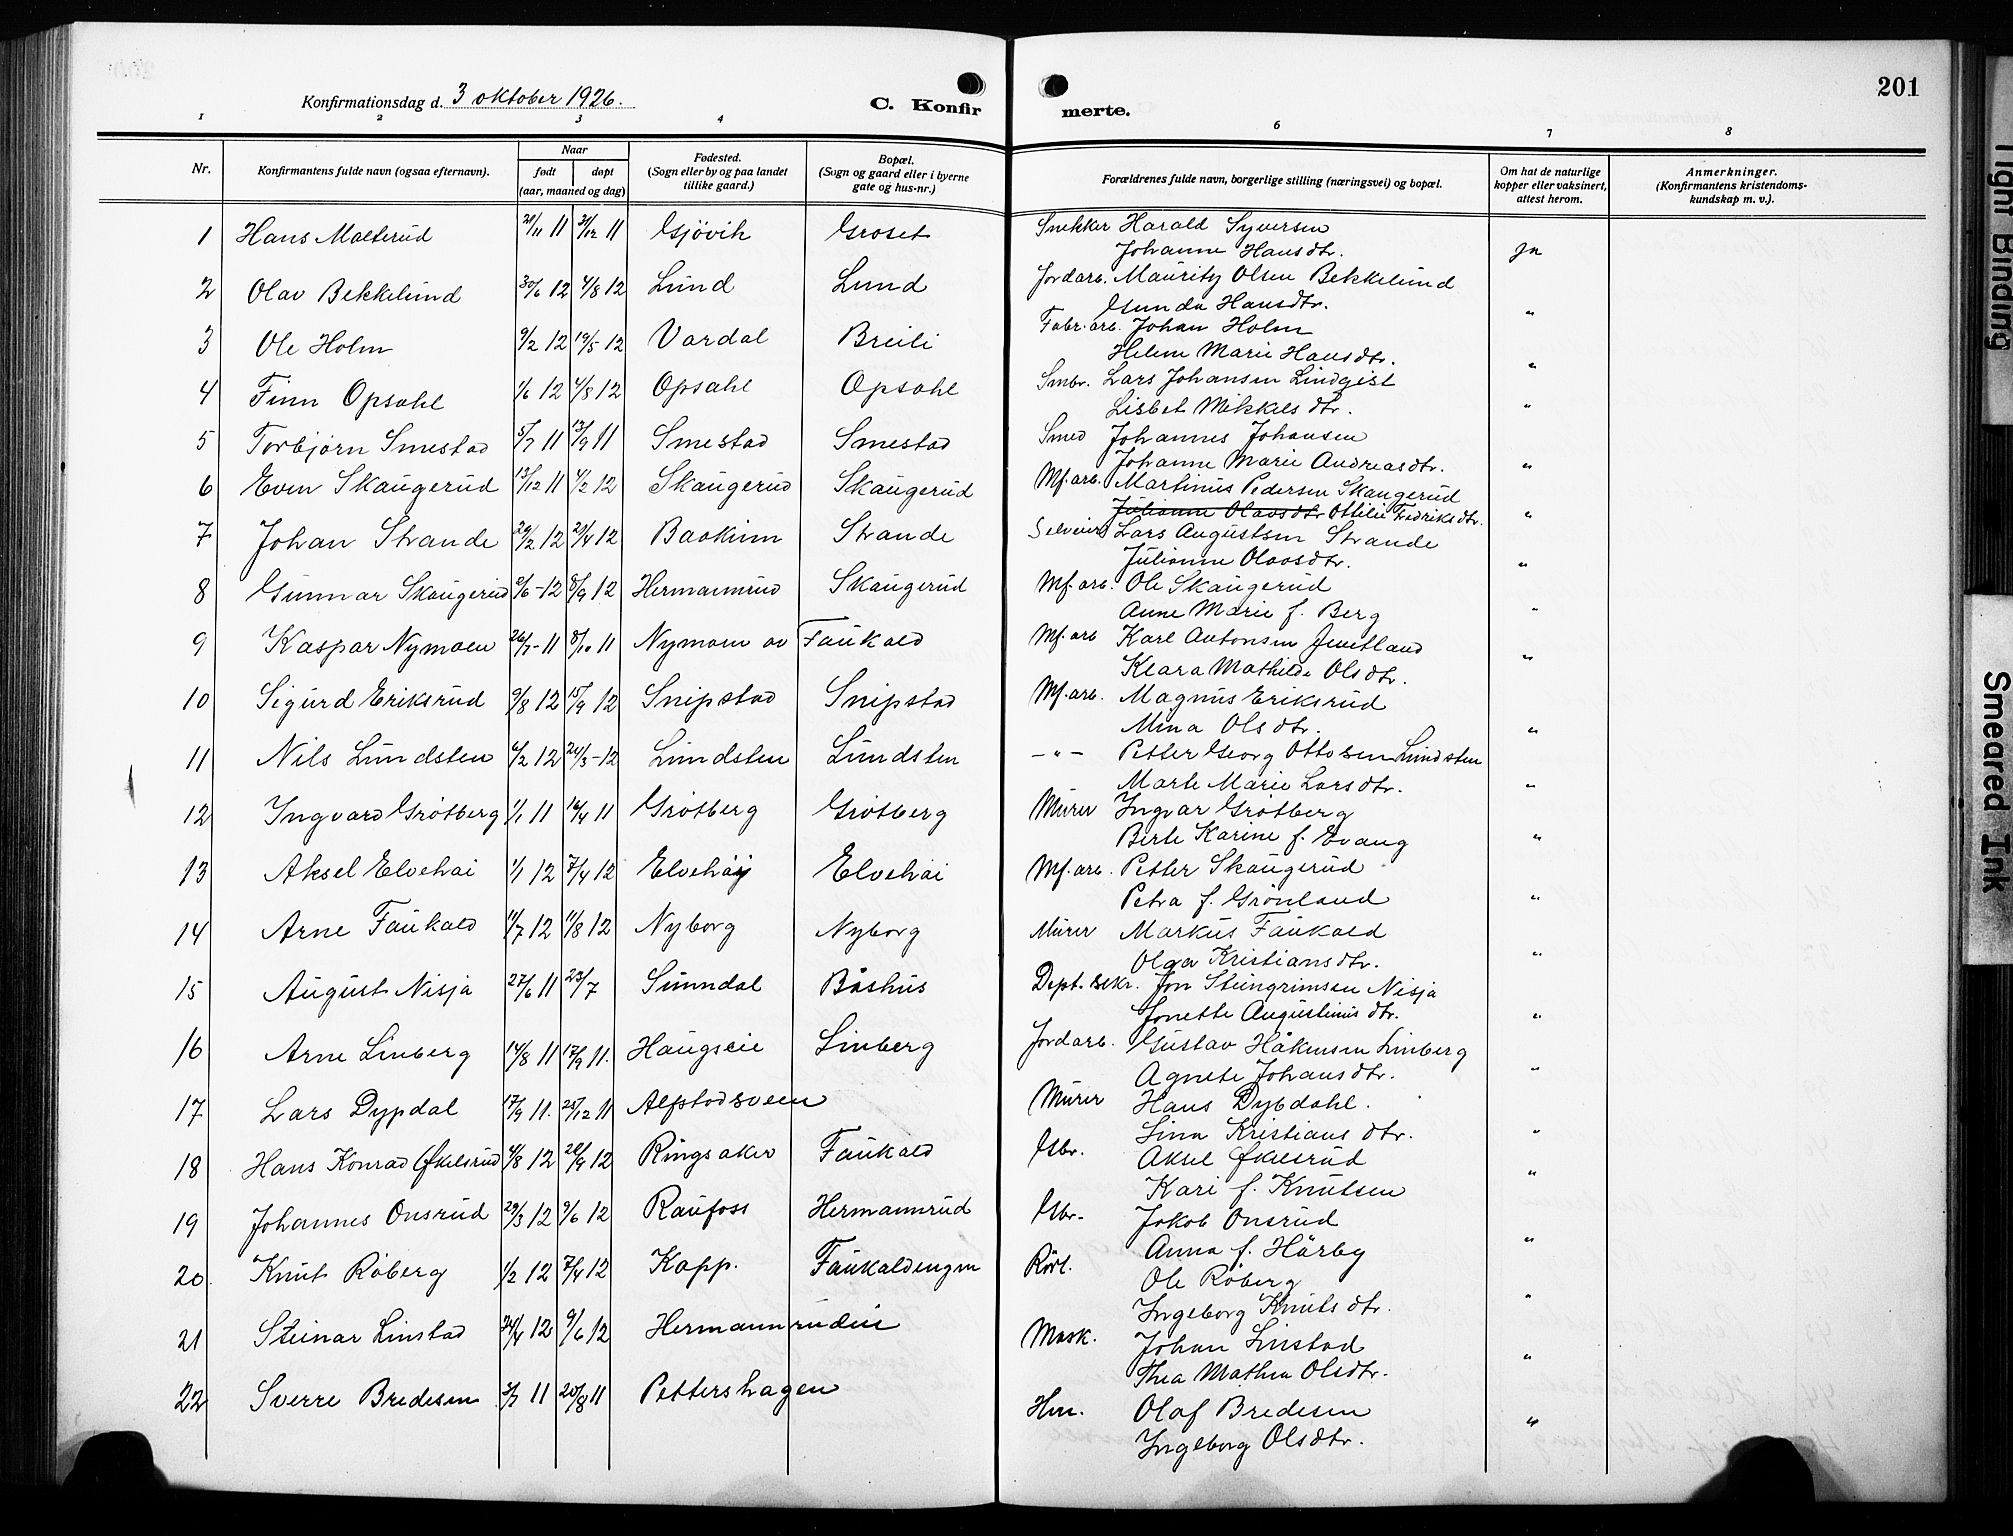 Konfirmationsdag d. 3 oktober 1926.
C. Konfirmerte.
201
1 2 3 4 6 7 8
Nr.
Konfirmantens fulde navn (ogsaa efternavn).
Naar
født døpt
(aar, maaned og dag)
Fødested.
(Sogn eller by og paa landet
tillike gaard.)
Bopæl.
(Sogn og gaard eller i byerne
gate og hus-nr.)
Forældrenes fulde navn, borgerlige stilling (næringsvei) og bopæl.
Om hat de naturlige
kopper eller vaksinert,
attest herom.
Anmerkninger.
(Konfirmantens kristendoms-
kundskap m. v.).
1 Hans Malterud 21/11 11 31/12 11 Gjövik Groset Snekker Harald Syversen
Johanne Hansdtr. ja
2 Olav Bekkelund 30/6 12 4/8 12 Lund Lund Jordarb. Mauritz Olsen Bekkelund
Gunda Hansdtr. "
3 Ole Holm 9/2 12 19/5 12 Vardal Breili Fabr. arb. Johan Holm
Helene Marie Hansdtr. "
4 Finn Opsahl 1/6 12 4/8 12 Opsahl Opsahl Smbr. Lars Johansen Lindqist
Lisbet Mikkelsdtr. "
5 Torbjørn Smestad 5/7 11 13/9 11 Smestad Smestad Smed Johannes Johansen
Johanne Marie Andreasdtr. "
6 Even Skaugerud 13/12 11 4/2 12 Skaugerud Skaugerud Mf. arb. Martinus Pedersen Skaugerud
Julianne Olavsdtr Ottilie Fredriksdtr. "
7 Johan Strande 20/2 12 21/4 12 Baakinn Strande Selveier Lars Augustsen Strande
Julianne Olavsdtr. "
8 Gunnar Skaugerud 2/6 - 12 8/9 12 Hermannrud Skaugerud Mf. arb. Ole Skaugerud
Anne Marie f. Berg "
9 Kaspar Nymoen 26/7 - 11 8/10 11 Nymoen av Faukald Mf. arb Karl Antonsen Jemtland
Klara Mathilde Olsdtr. "
10 Sigurd Eriksrud 9/8 12 15/9 12 Snipstad Snipstad Mf. arb. Magnus Eriksrud
Mina Olsdtr. "
11 Nils Lundsten 4/2 12 24/3 - 12 Lundsten Lundsten - " - Petter Georg Ottosen Lundsten
Marte Marie Larsdtr. "
12 Ingvard Grötberg 1/1 11 16/4 11 Grötberg Grötberg Murer Ingvar Grötberg
Berte Karine f. Evang "
13 Aksel Elvehøi 1/1 12 7/4 12 Elvehöy Elvehøi Mf. arb. Petter Skaugerud
Petra f. Grönland "
14 Arne Faukald 11/7 12 11/8 12 Nyborg Nyborg Murer Markus Faukald
Olga Kristiansdtr. "
15 August Nisja 27/6 11 23/7 Sunndal Båshus Dept. sekr. Jon Steingrimsen Nisja
Jonette Augustinusdtr. "
16 Arne Linberg 14/8 11 17/9 11. Haugseie Linberg Jordarb. Gustav Håkensen Linberg
Agnete Johansdtr. "
17 Lars Dypdal 17/9 11. 25/12 11 Alfstadsveen Murer Hans Dybdahl.
Lina Kristiansdtr. "
18 Hans Konrad Økelsrud 4/8 12 28/9 12 Ringsaker Faukald Gbr. Aksel Økelsrud
Kari f. Knutsen "
19 Johannes Onsrud 29/3 12 9/6 12 Raufoss Hermannrud Gbr. Jakob Onsrud
Anna f. Hörby "
20. Knut Röberg 1/2 12 7/4 12 Kapp. Faukaldengen Rörl. Ole Röberg
Ingeborg Knutsdtr. "
21 Steinar Linstad 24/4 12 9/6 12 Hermannrudeie Mask. Johan Linstad
Thea Mathea Olsdtr. "
22 Sverre Bredesen 3/7 11 20/8 11 Pettershagen Hm. Olaf Bredesen
Ingeborg Olsdtr. "
Tight Binding
Smeared Ink